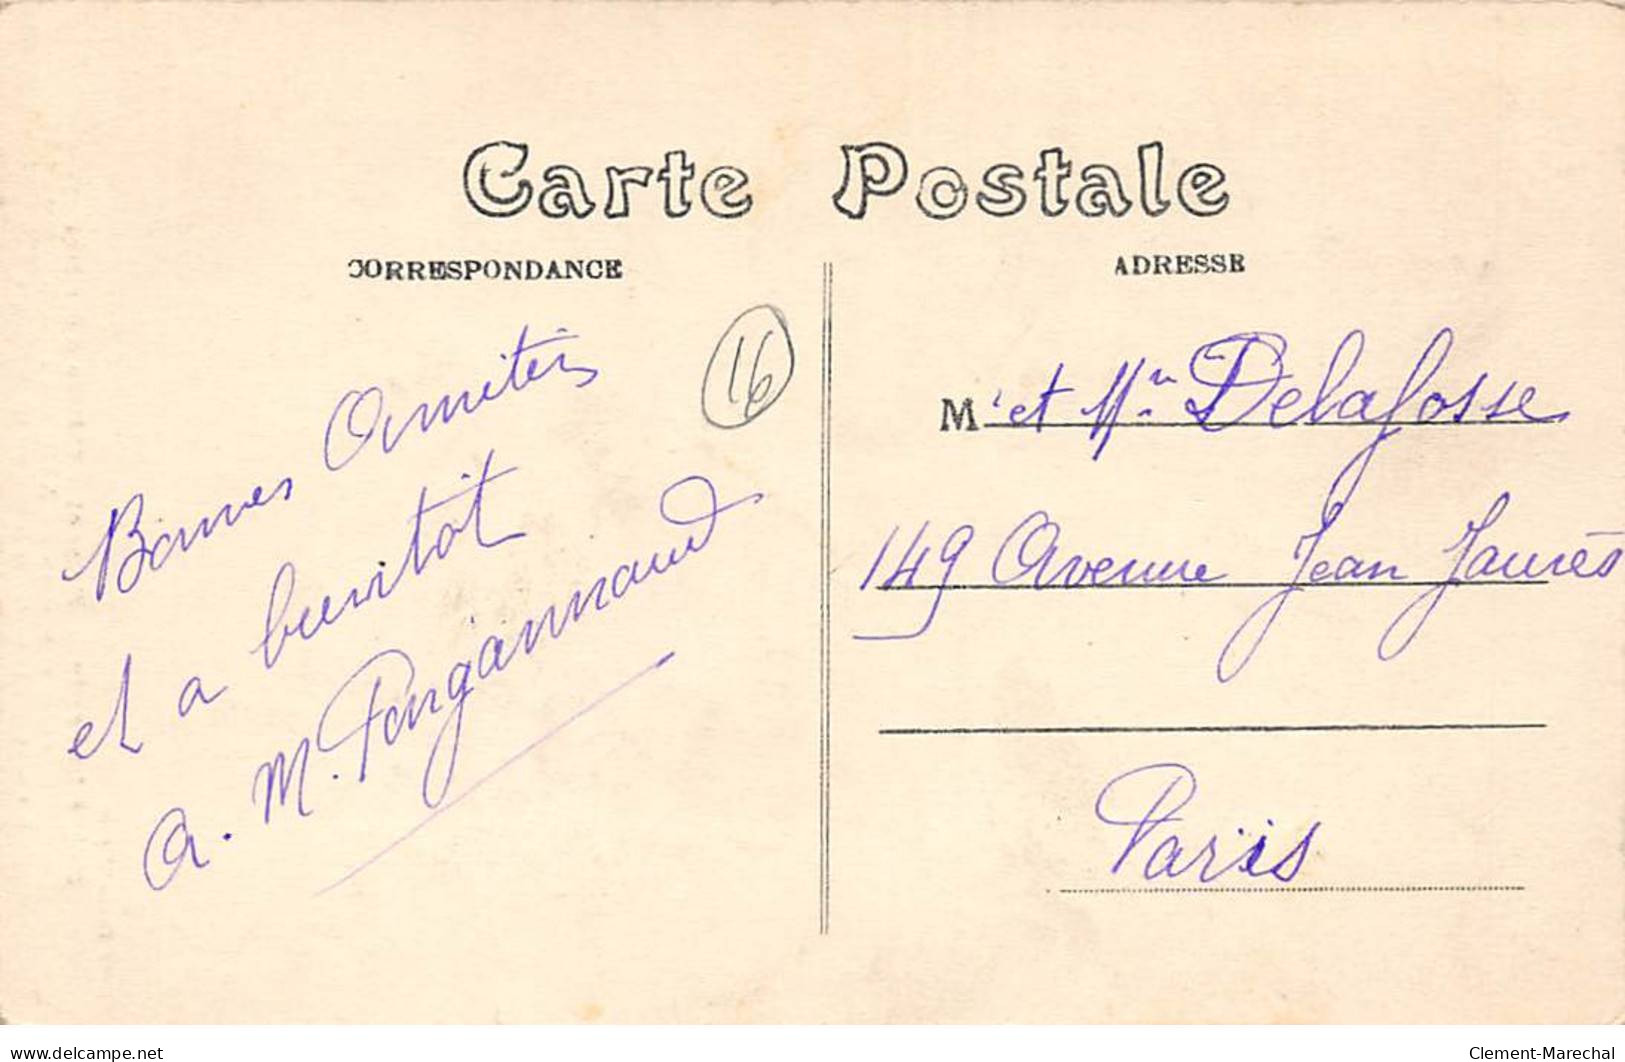 Carte Postale
CORRESPONDANCE
ADRESSE
16
Bonnes Amitiés
et a bientôt
a. M.
M r et Mme Delafosse
149 Avenue Jean Jaurès
Paris
www.delcampe.net
Clement-Marechal